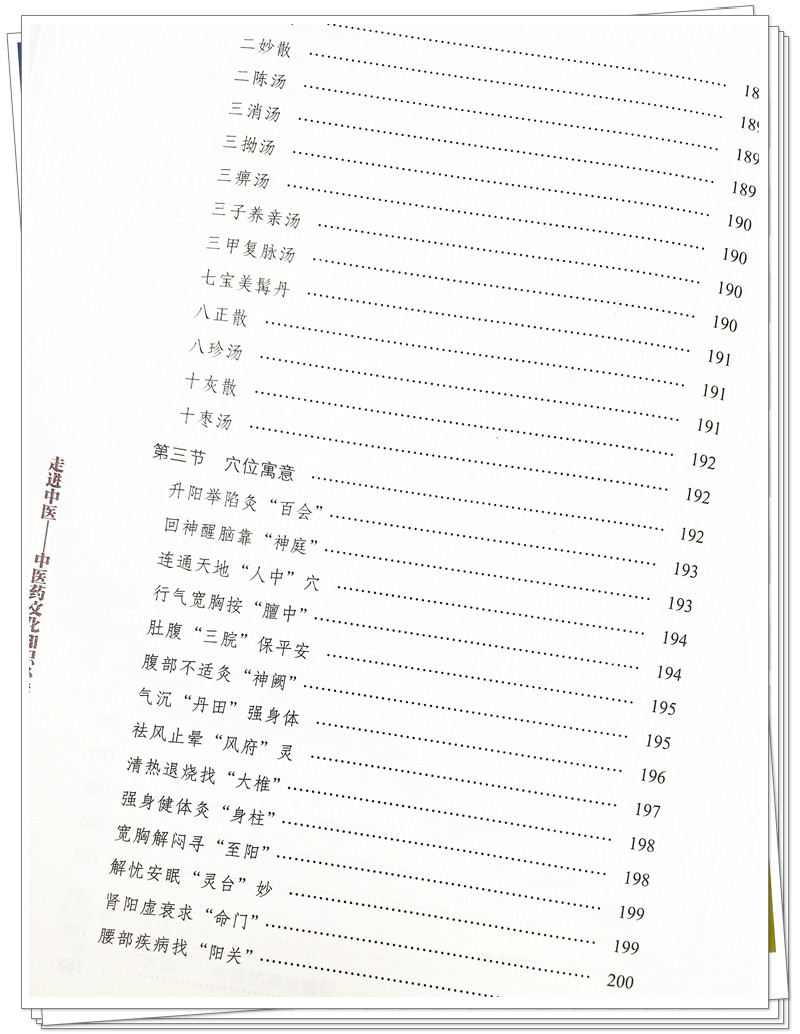 二妙散 189
二陈汤 189
三消汤 189
三拗汤 190
三痹汤 190
三子养亲汤 190
三甲复脉汤 190
七宝美髯丹 191
八正散 191
八珍汤 191
十灰散 192
十枣汤 192
第三节 穴位寓意 192
升阳举陷灸“百会” 193
回神醒脑靠“神庭” 193
连通天地“人中”穴 194
行气宽胸按“膻中” 194
肚腹“三脘”保平安 195
腹部不适灸“神阙” 195
气沉“丹田”强身体 196
祛风止晕“风府”灵 197
清热退烧找“大椎” 198
强身健体灸“身柱” 198
宽胸解闷寻“至阳” 199
解忧安眠“灵台”妙 199
肾阳虚衰求“命门” 200
腰部疾病找“阳关”
走进中医——中医药文化